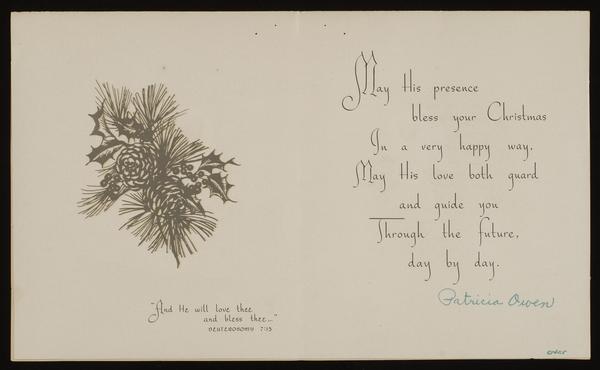 "And He will love thee
and bless thee..."
DEUTERONOMY 7:13
May His presence
bless your Christmas
In a very happy way,
May His love both guard
and guide you
Through the future,
day by day.
Patricia Owen